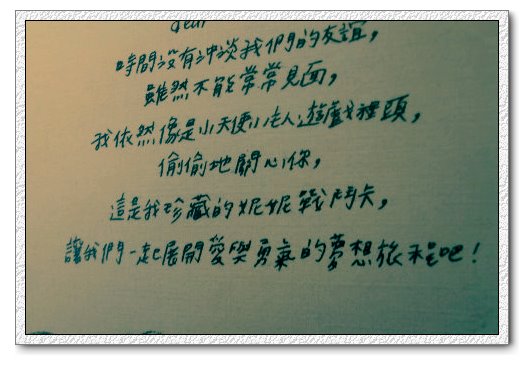 dear
時間沒有沖淡我們的友誼，
雖然不能常常見面，
我依然像是小天使小主人遊戲裡頭，
偷偷地關心你，
這是我珍藏的妮妮戰鬥卡，
讓我們一起展開愛與勇氣的夢想旅程吧！